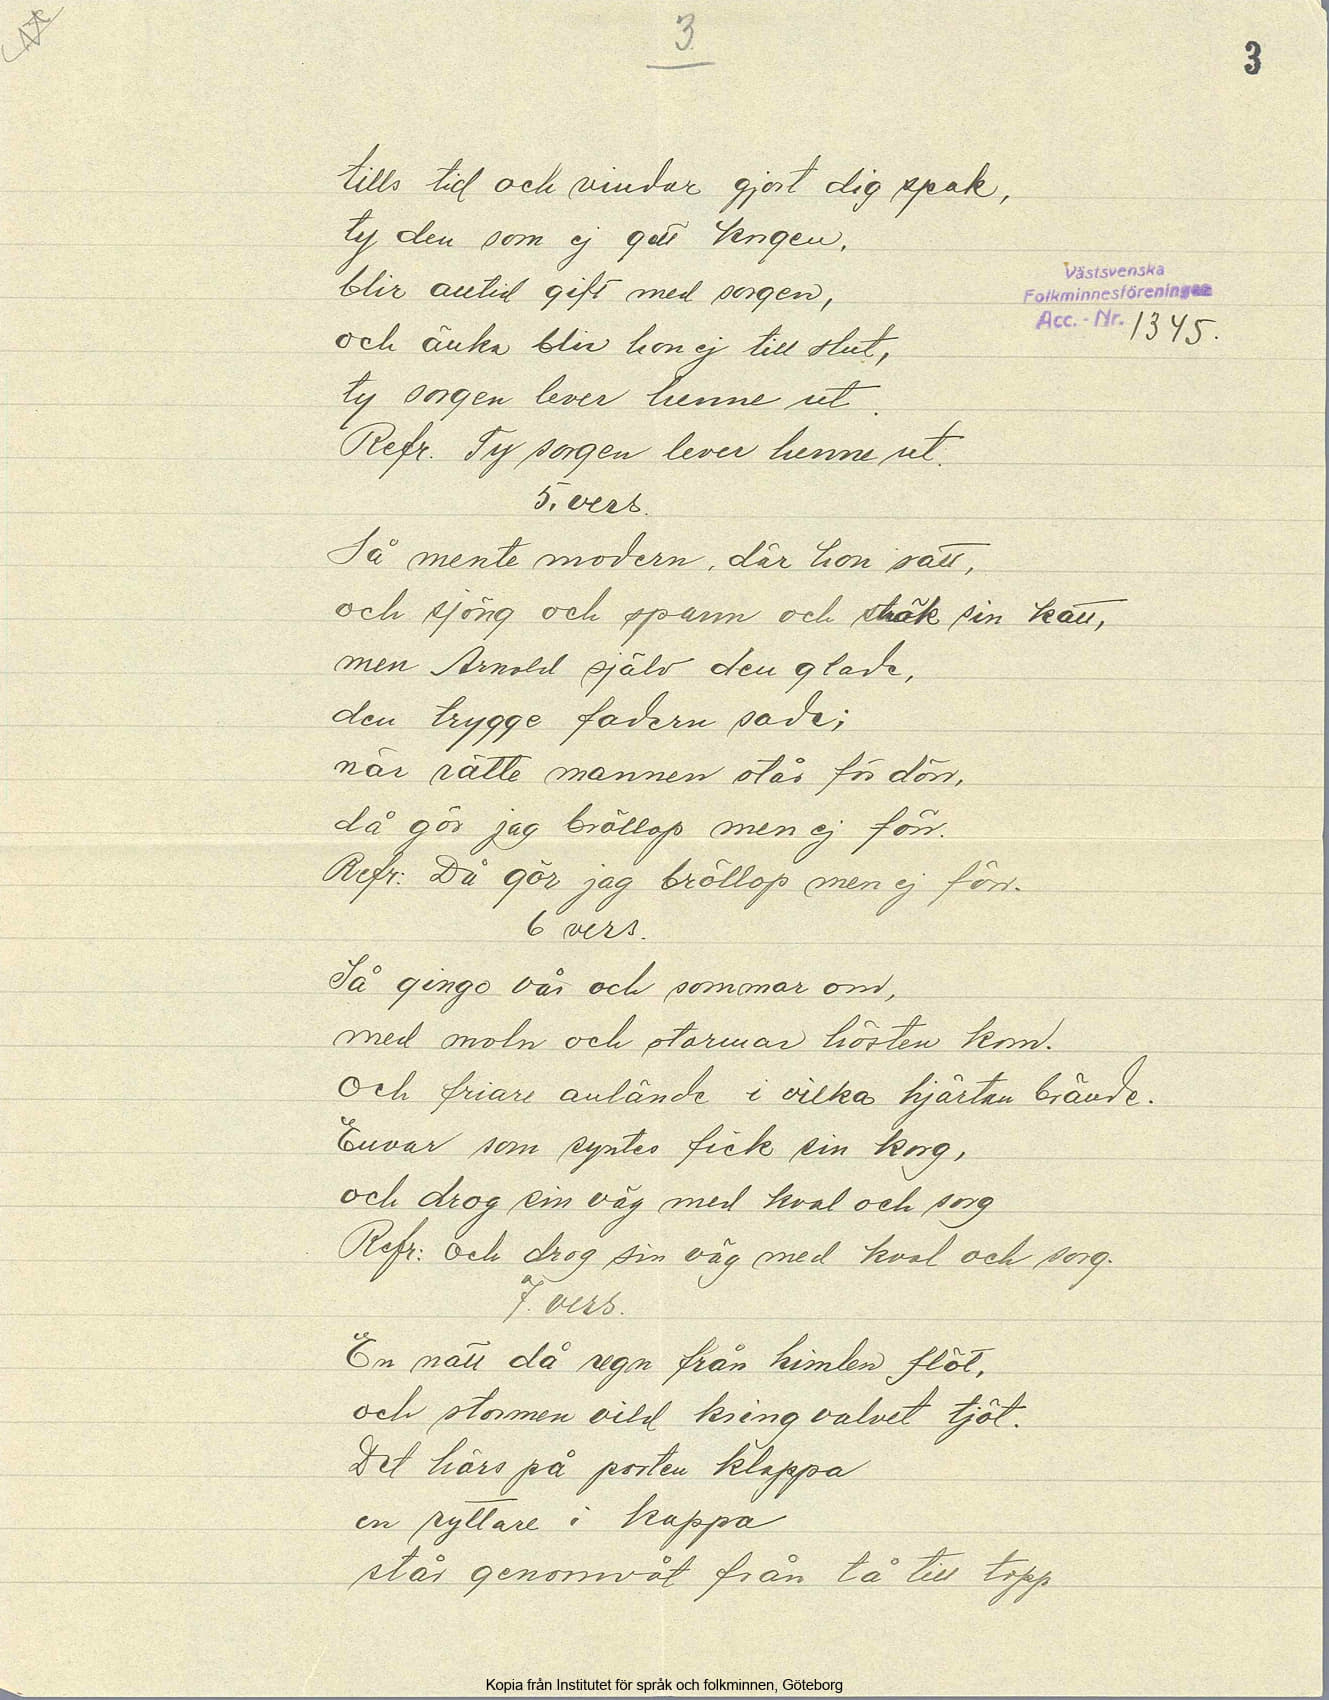 3
3
tills tid och vindar gjort dig spak,
ty den som ej gett korgen,
blir alltid gift med sorgen,
Västsvenska
Folkminnesföreningen
Acc. - Nr. 1345.
och änka blir hon ej till slut,
ty sorgen lever henne ut.
Refr. Ty sorgen lever henne ut.
5. vers.
Så mente modern, där hon satt,
och sjöng och spann och strök sin katt,
men Arnold själv den glade,
den trygge fadern sade;
när rätte mannen står för dörr,
då gör jag bröllop men ej förr.
Refr: Då gör jag bröllop men ej förr.
6 vers.
Så gingo vår och sommar om,
med moln och stormar hösten kom.
Och friare anlände i vilka hjärtan brände.
Envar som syntes fick sin korg,
och drog sin väg med kval och sorg
Refr: Och drog sin väg med kval och sorg.
7. vers.
En natt då regn från himlen flöt,
och stormen vild kring valvet tjöt.
Det hörs på porten klappa
en ryttare i kappa
står genomvåt från tå till topp
Kopia från Institutet för språk och folkminnen, Göteborg